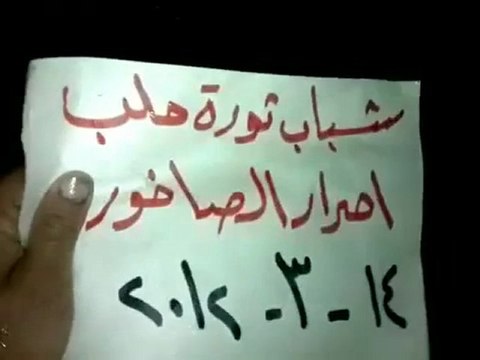 شباب ثورة حلب
احرار الصاخور
١٤ - ٣ - ٢٠١٢